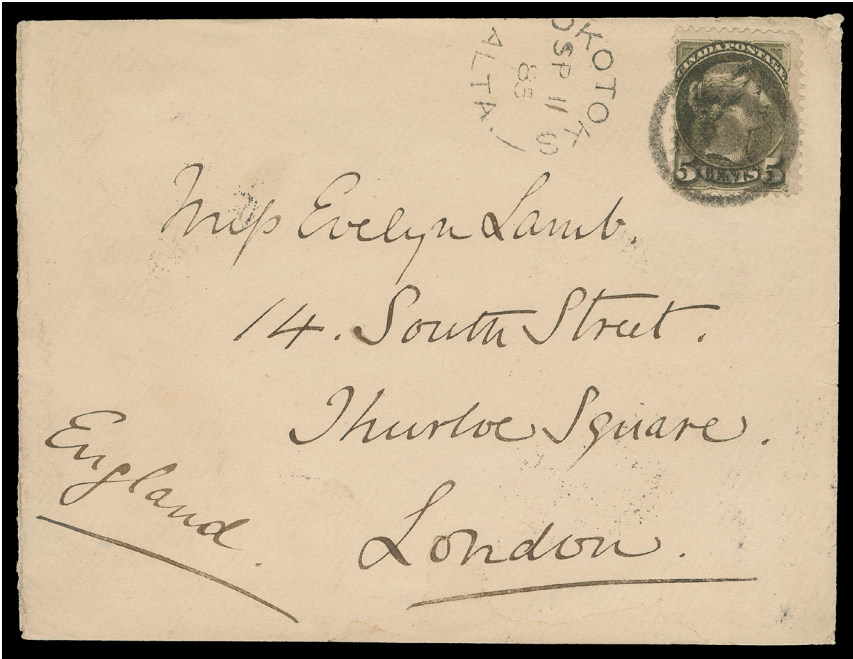 OKOTOKS
SP 11
88
ALTA.
CANADA POSTAGE
5 CENTS 5
Miss Evelyn Lamb.
14. South Street.
Thurloe Square.
London.
England.